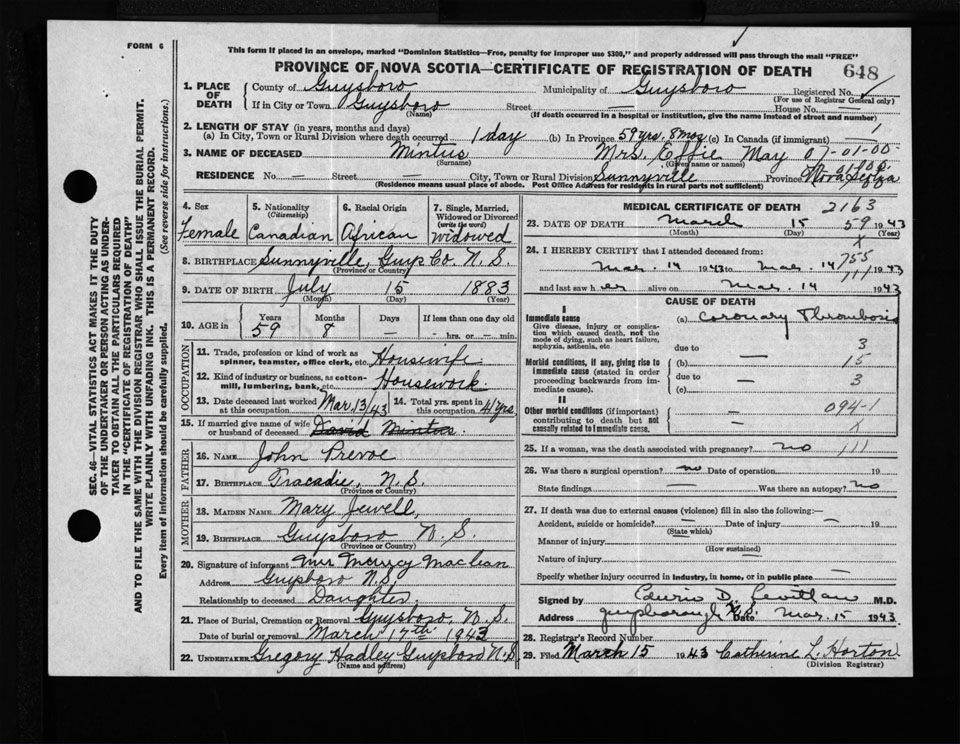 FORM 6
This form if placed in an envelope, marked "Dominion Statistics—Free, penalty for improper use $300," and properly addressed will pass through the mail "FREE"
PROVINCE OF NOVA SCOTIA—CERTIFICATE OF REGISTRATION OF DEATH
648
1. PLACE OF DEATH
County of Guysboro Municipality of Guysboro Registered No.
(For use of Registrar General only)
If in City or Town Guysboro Street — House No. —
(Name) (If death occurred in a hospital or institution, give the name instead of street and number)
2. LENGTH OF STAY (in years, months and days)
(a) In City, Town or Rural Division where death occurred 1 day (b) In Province 59 yrs. 8 mos (c) In Canada (if immigrant)
3. NAME OF DECEASED Mintus Mrs. Effie May 07-01-00
(Surname) (Given name or names)
RESIDENCE No. — Street — City, Town or Rural Division Sunnyville Province Nova Scotia
(Residence means usual place of abode. Post Office Address for residents in rural parts not sufficient)
4. Sex
Female
5. Nationality (Citizenship)
Canadian
6. Racial Origin
African
7. Single, Married, Widowed or Divorced (write the word)
widowed
8. BIRTHPLACE Sunnyville, Guys Co. N.S.
(Province or Country)
9. DATE OF BIRTH July 15 1883
(Month) (Day) (Year)
10. AGE in Years Months Days If less than one day
59 8 — - hrs. or — min.
OCCUPATION
11. Trade, profession or kind of work as spinner, teamster, office clerk, etc. Housewife
12. Kind of industry or business, as cotton-mill, lumbering, bank, etc. Housework
13. Date deceased last worked at this occupation Mar. 13/43 14. Total yrs. spent in this occupation 41 yrs.
15. If married give name of wife or husband of deceased David Mintus
FATHER
16. NAME John Prevoe
17. BIRTHPLACE Tracadie, N.S.
(Province or Country)
MOTHER
18. MAIDEN NAME Mary Jewell,
19. BIRTHPLACE Guysboro N.S.
(Province or Country)
20. Signature of informant Maclean
Address Guysboro N.S.
Relationship to deceased Daughter
21. Place of Burial, Cremation or Removal Guysboro, N.S.
Date of burial or removal March 17th 1943
22. UNDERTAKER Gregory Hadley Guysboro N.S.
(Name and address)
MEDICAL CERTIFICATE OF DEATH 2163
23. DATE OF DEATH March 15 59 1943
(Month) (Day) (Year)
X
24. I HEREBY CERTIFY that I attended deceased from:
755
Mar. 14 1943 to Mar. 14 1943
111
and last saw her alive on Mar. 14 1943
CAUSE OF DEATH
I
Immediate cause
Give disease, injury or complication which caused death, not the mode of dying, such as heart failure, asphyxia, asthenia, etc.
(a) Coronary Thrombosis
due to 3
Morbid conditions, if any, giving rise to immediate cause (stated in order proceeding backwards from immediate cause).
(b) — 15
due to 3
(c) —
II
Other morbid conditions (if important) contributing to death but not causally related to immediate cause.
— 094-1
X
25. If a woman, was the death associated with pregnancy? no 111
26. Was there a surgical operation? no Date of operation 19
State findings — Was there an autopsy? no
27. If death was due to external causes (violence) fill in also the following:—
Accident, suicide or homicide? — Date of injury — 19
(State which)
Manner of injury
(How sustained)
Nature of injury —
Specify whether injury occurred in industry, in home, or in public place —
Signed by D. M.D.
N.S. Date Mar. 15 1943
28. Registrar's Record Number
29. Filed March 15 1943 Catherine L. Horton
(Division Registrar)
SEC. 46—VITAL STATISTICS ACT MAKES IT THE DUTY
OF THE UNDERTAKER OR PERSON ACTING AS UNDER-
TAKER TO OBTAIN ALL THE PARTICULARS REQUIRED
IN THE "CERTIFICATE OF REGISTRATION OF DEATH"
AND TO FILE THE SAME WITH THE DIVISION REGISTRAR WHO SHALL ISSUE THE BURIAL PERMIT.
WRITE PLAINLY WITH UNFADING INK. THIS IS A PERMANENT RECORD.
Every item of information should be carefully supplied. (See reverse side for instructions.)